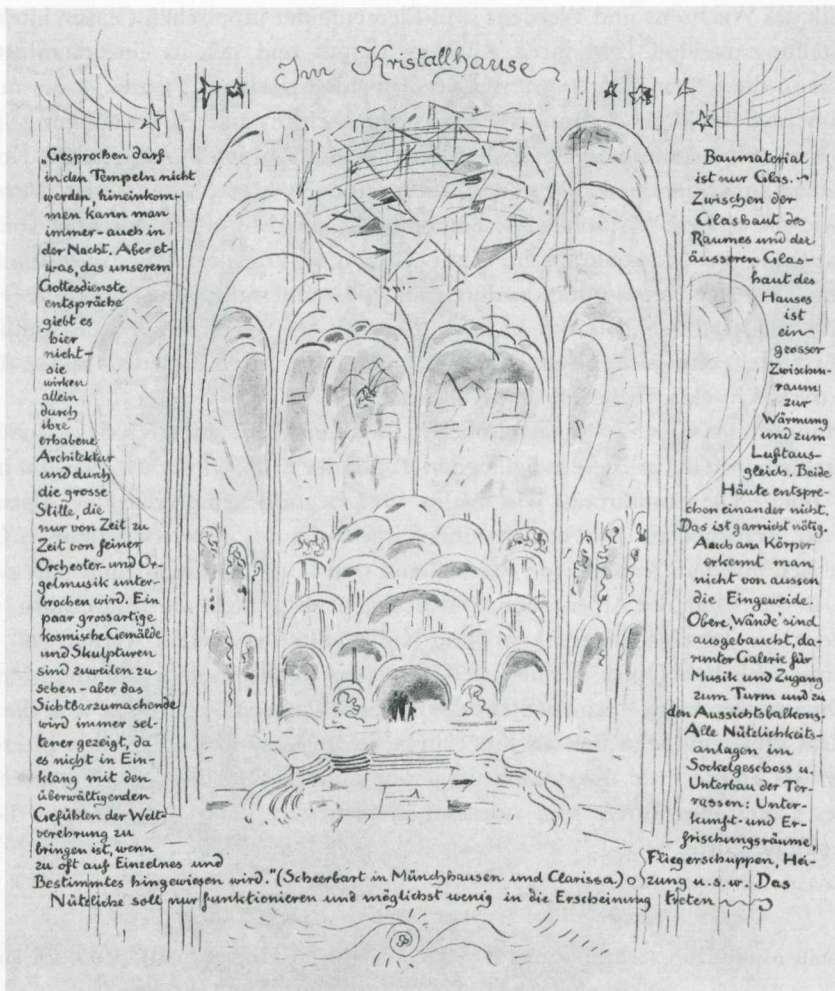 Im Kristallhause
„Gesprochen darf
in den Tempeln nicht
werden, hineinkom-
men kann man
immer - auch in
der Nacht. Aber et-
was, das unserem
Gottesdienste
entspräche
giebt es
hier
nicht -
sie
wirken
allein
durch
ihre
erhabene
Architektur
und durch
die grosse
Stille, die
nur von Zeit zu
Zeit von feiner
Orchester- und Or-
gelmusik unter-
brochen wird. Ein
paar grossartige
kosmische Gemälde
und Skulpturen
sind zuweilen zu
sehen - aber das
Sichtbarzumachende
wird immer sel-
tener gezeigt, da
es nicht in Ein-
klang mit den
überwältigenden
Gefühlen der Welt-
verehrung zu
bringen ist, wenn
zu oft auf Einzelnes und
Bestimmtes hingewiesen wird." (Scheerbart in Münchhausen und Clarissa)
Baumaterial
ist nur Glas. -
Zwischen der
Glashaut des
Raumes und der
äusseren Glas-
haut des
Hauses
ist
ein
grosser
Zwischen-
raum
zur
Wärmung
und zum
Luftaus-
gleich. Beide
Häute entspre-
chen einander nicht.
Das ist garnicht nötig.
Auch am Körper
erkennt man
nicht von aussen
die Eingeweide.
Obere „Wände" sind
ausgebaucht, da-
runter Galerie für
Musik und Zugang
zum Turm und zu
den Aussichtsbalkons.
Alle Nützlichkeits-
anlagen im
Sockelgeschoss u.
Unterbau der Ter-
rassen: Unter-
kunft- und Er-
frischungsräume,
Fliegerschuppen, Hei-
zung u.s.w. Das
Nützliche soll nur funktionieren und möglichst wenig in die Erscheinung treten